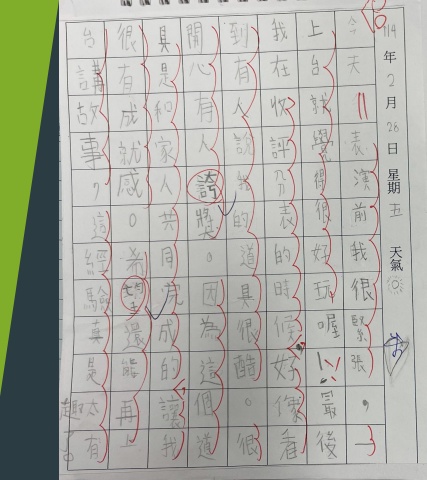 114年2月26日 星期五 天氣
今天表演前我很緊張,一
上台就覺得很好玩喔!最後
我在收評分表的時候好像看
到有人說我的道具很酷。很
開心有人誇獎。因為這個道
具是和家人共同完成的讓我
很有成就感。希望還能再上
台講故事,這經驗真是太有趣了